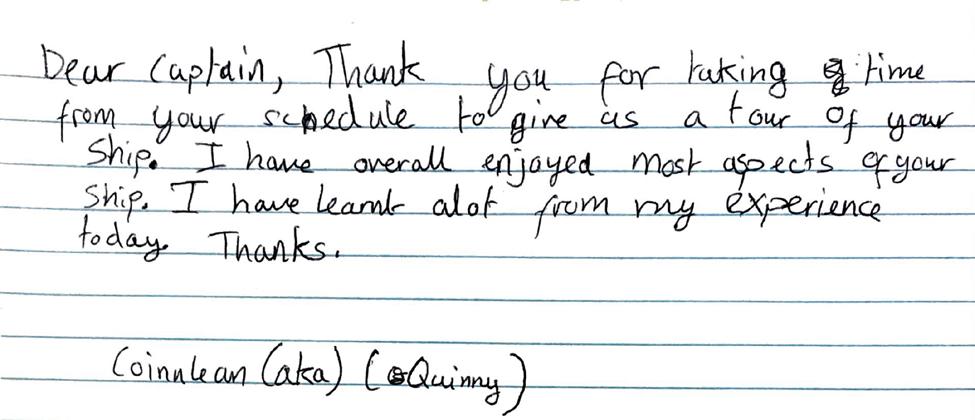 Dear Captain, Thank you for taking time
from your schedule to give us a tour of your
Ship. I have overall enjoyed most aspects of your
Ship. I have learnt alot from my experience
today. Thanks.
Coinnlean (aka) (Quinny)